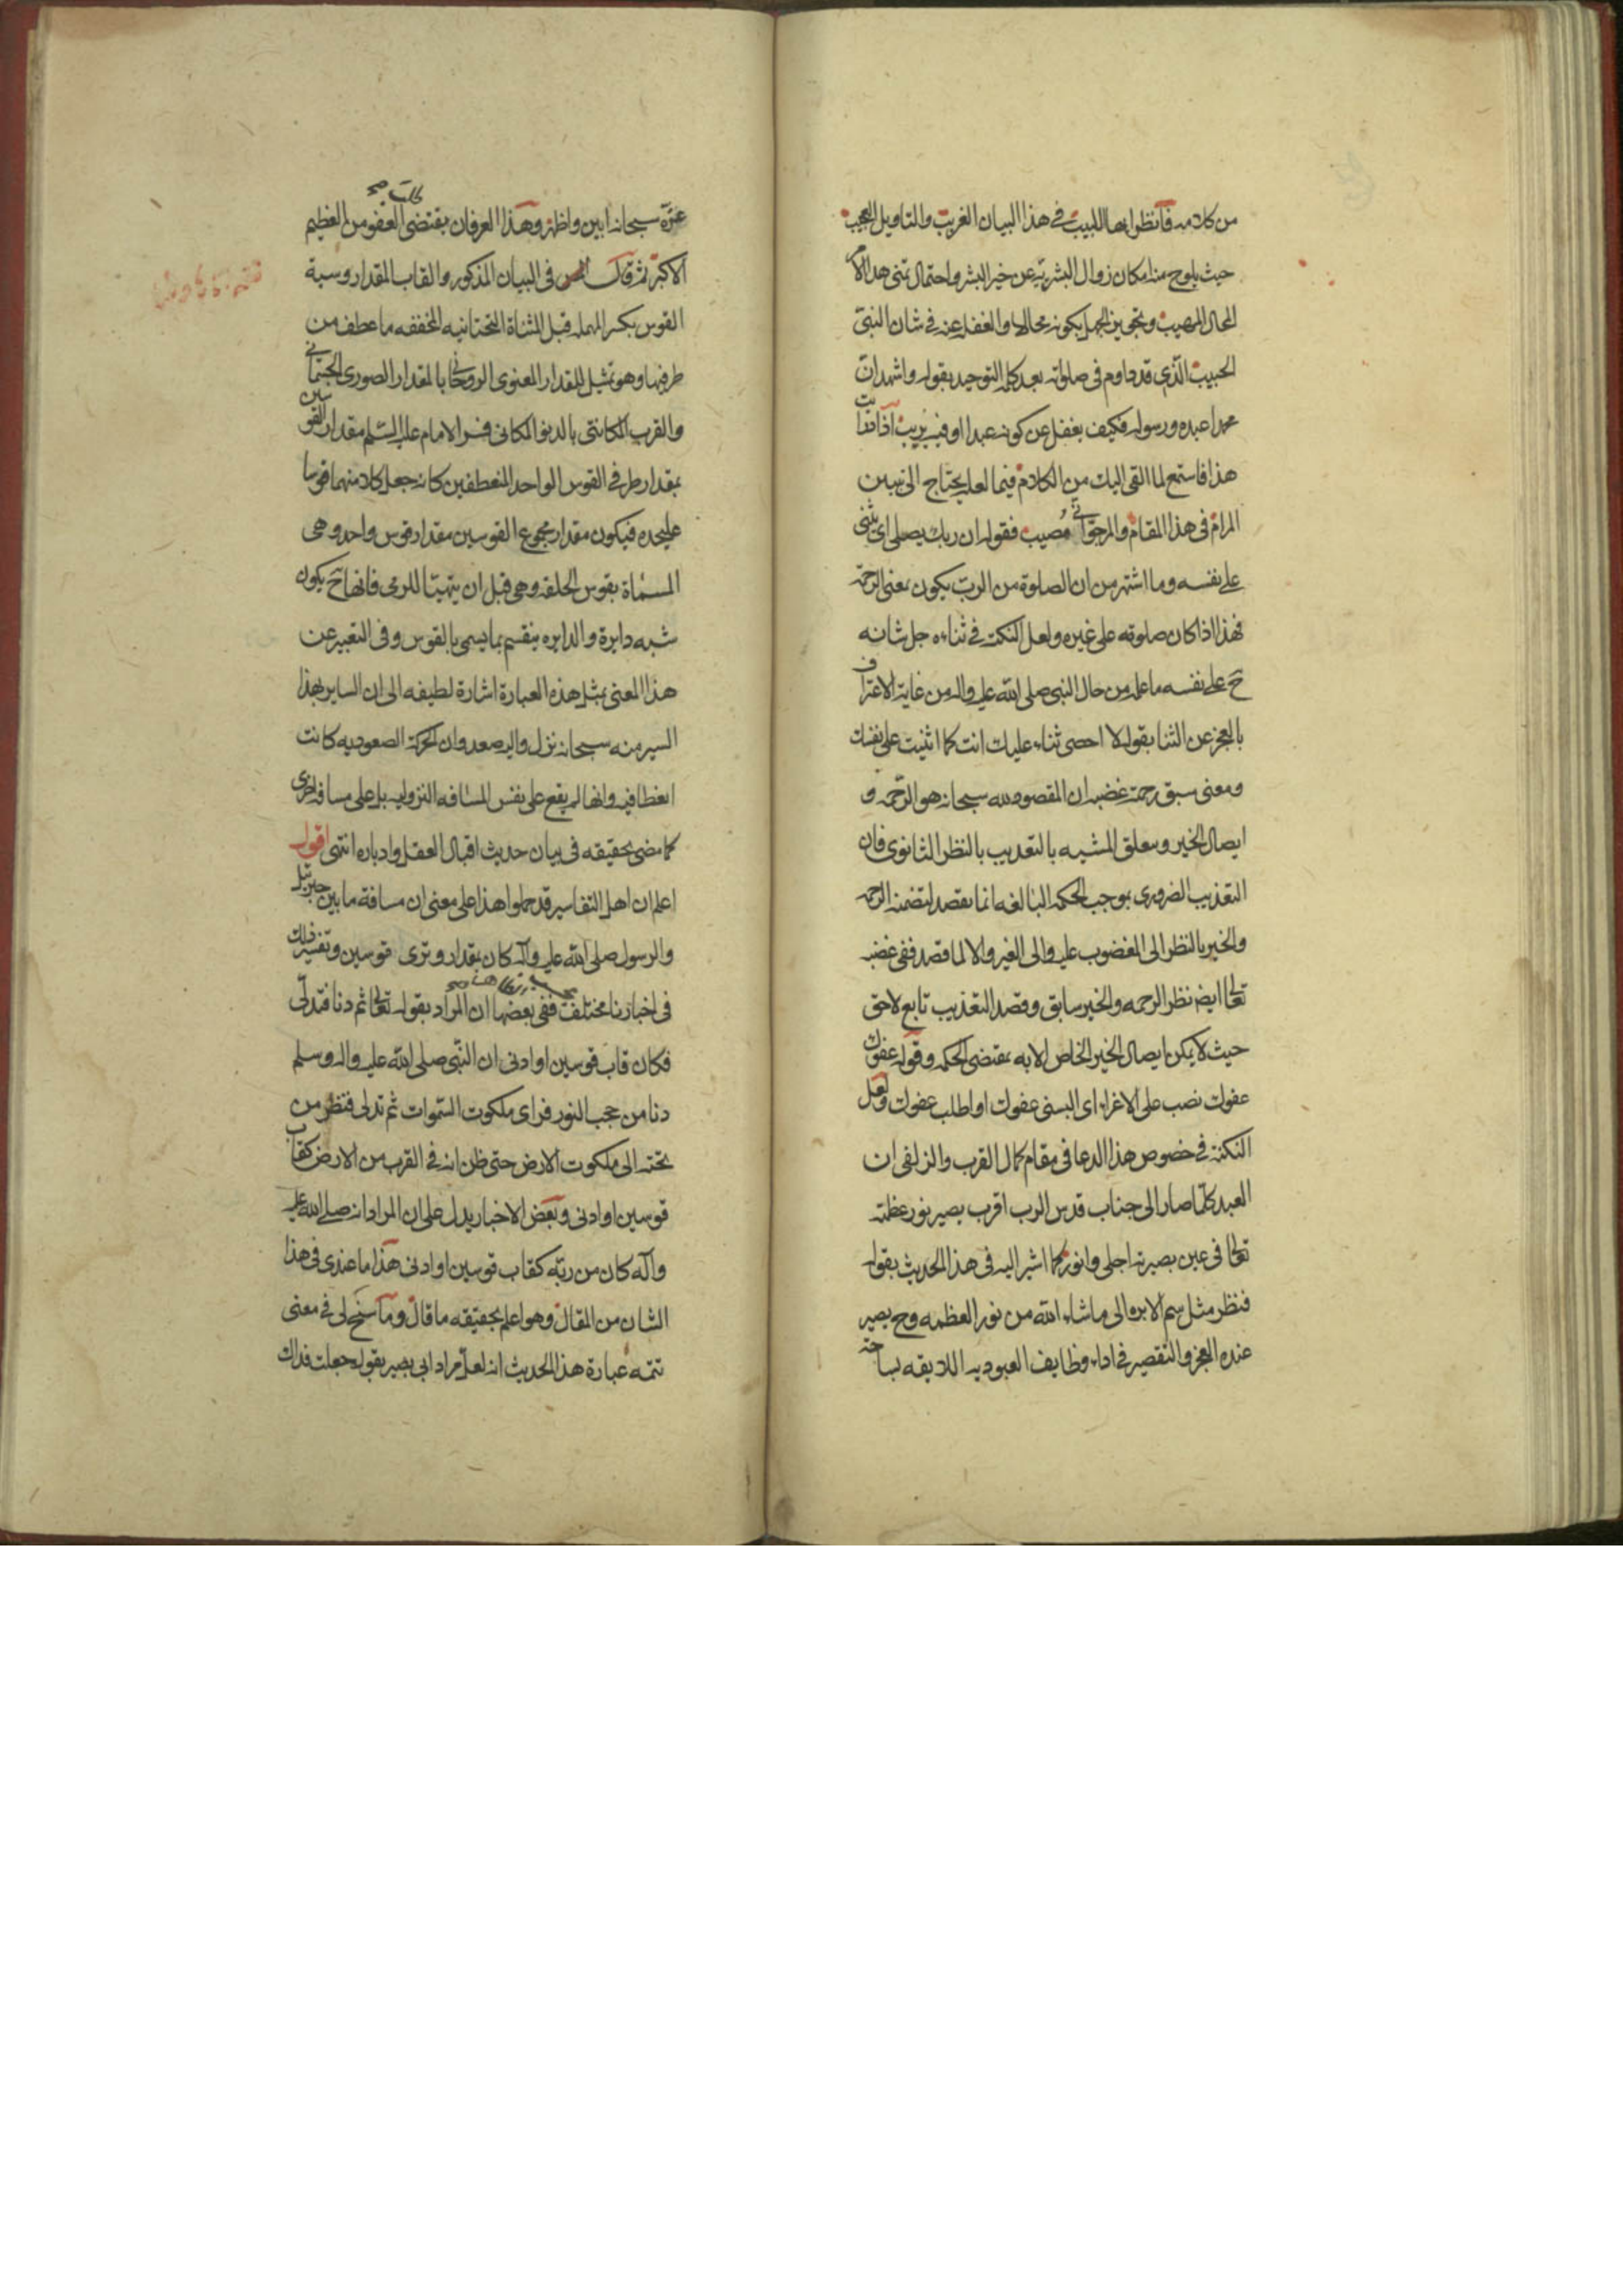 من كلامه فانظر ايها اللبيب في هذا البيان الغريب والتاويل العجيب
حيث يلوح منه امكان زوال البشرية عن خير البشر واحتمال تمني هذا الامر
المحال المهيب وتجويز الجهل بكونه محالا والغفلة عنه في شان النبي
الحبيب الذي قد داوم في صلوته بعد كلمة التوحيد بقوله واشهد ان
محمدا عبده ورسوله فكيف يغفل عن كونه عبدا او فيه يريب اذا تمت
هذا فاستمع لما القي اليك من الكلام فيما لعله يحتاج الى تبيين
المرام في هذا المقام والمرجو اني مصيب فقوله ان ربك يصلي اي يثني
على نفسه وما اشتهر من ان الصلوة من الرب يكون بمعنى الرحمة
فهذا اذا كان صلوته على غيره ولعل النكتة في ثناءه جل شانه
ح على نفسه ما علم من حال النبي صلى الله عليه واله من غاية الاعتراف
بالعجز عن الثنا بقوله لا احصي ثناء عليك انت كما اثنيت على نفسك
ومعنى سبق رحمته غضبه ان المقصود لله سبحانه هو الرحمة و
ايصال الخير وتعلق المشيه بالتعذيب بالنظر الثانوي فان
التعذيب الضروري بموجب الحكمه البالغه انما يقصد لتضمنه الرحمه
والخير بالنظر الى المغضوب عليه والى الغير والا لما قصد ففي غضبه
تعالى ايضا نظر الرحمه والخير سابق وقصد التعذيب تابع لاحق
حيث لا يمكن ايصال الخير الخاص الا به بمقتضى الحكمه وقوله عفوك
عفوك نصب على الاغراء اي البسني عفوك او اطلب عفوك ولعل
النكتة في خصوص هذا الدعا في مقام كمال القرب والزلفى ان
العبد كلما صار الى جناب قدس الرب اقرب يصير نور عظمته
تعالى في عين بصيرته اجلى وانور كما اشير اليه في هذا الحديث بقوله
فنظر مثل سم الابره الى ما شاء الله من نور العظمه وح يصير
عنده العجز والتقصير في اداء وظايف العبوديه اللايقه بساحة
عزه سبحانه ابين واظهر وهذا العرفان يقتضي طلب العفو من العظيم
الاكبر ثم قال في البيان المذكور والقاب المقدار وسية
القوس بكسر المهمله قبل المثناة التحتانيه المخففه ما عطف من
طرفيها وهو تمثيل للمقدار المعنوي الروحاني بالمقدار الصوري الجسماني
والقرب المكانتي بالدنو المكاني فسر الامام عليه السلم مقدار القوسين
بمقدار طرفي القوس الواحد المنعطفين كانه جعل كلا منهما قوسا
عليحده فيكون مقدار مجموع القوسين مقدار قوس واحد وهي
المسماة بقوس الحلقه وهي قبل ان يتهيئا للرمي فانها ح يكون
شبه دايرة والدايره ينقسم بما يسمى بالقوس وفي التعبير عن
هذا المعنى بمثل هذه العبارة اشارة لطيفه الى ان الساير بهذا
السير منه سبحانه نزل واليه صعد وان الحركة الصعوديه كانت
انعطافيه وانها لم يقع على نفس المسافه النزوليه بل على مسافة اخرى
كما مضى تحقيقه في بيان حديث اقبال العقل وادباره انتهى اقول
اعلم ان اهل التفاسير قد حملوا هذا على معنى ان مسافة ما بين جبرئيل
والرسول صلى الله عليه واله كان بمقدار وترى قوسين وتفسير ذلك
في اخبارنا مختلفة ففي بعضها ان المراد بقوله تعالى ثم دنا فتدلى
فكان قاب قوسين او ادنى ان النبي صلى الله عليه واله وسلم
دنا من حجب النور فراى ملكوت السموات ثم تدلى فنظر من
تحته الى ملكوت الارض حتى ظن انه في القرب من الارض كقاب
قوسين او ادنى وبعض الاخبار يدل على ان المراد انه صلى الله عليه
وآله كان من ربه كقاب قوسين او ادنى هذا ما عندي في هذا
الشان من المقال وهو اعلم بحقيقه ما قال وما سنح لي في معنى
تتمه عبارة هذا الحديث انه لعل مراد ابي بصير بقوله جعلت فداك